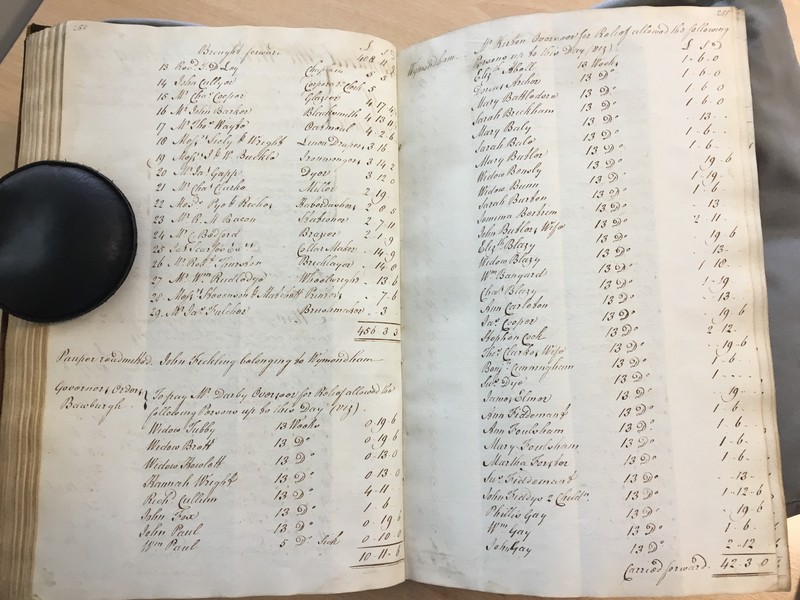 250
£ s d
Brought forward 408 11
13 Revd. Day Chaplain 5 5
14 John Cullyer Corporat. Clerk 5
15 Mr. Chas. Cooper Glazier 4 17 4
16 Mr. John Barker Blacksmith 4 13 0
17 Mr. Thos. Wayte Oatmeal 4 2 6
18 Messrs. Sicly & Wright Linen Draper 3 16
19 Messrs. J & W. Buckle Ironmonger 3 14 2
20 Mr. Jas. Gapp Dyer 3 12 0
21 Mr. Chas. Clarke Miller 2 19
22 Messrs. Pye & Haberdasher 2 8
23 Mr. R. M. Bacon Stationer 2 7
24 Mr. C. Bedford Brazier 2 1 9
25 Collar Maker 14 9
26 Mr. Robt. Thurston Bricklayer 14 0
27 Mr. Wm. Ruddledye Wheelwright 13 6
28 Messrs. Stevenson & Matchett Printers 7 6
29 Mr. Jas. Fulcher Brushmaker 3
456 3 3
Pauper readmitted. John Fickling belonging to Wymondham
Governors Orders To pay Mr. Darby Overseer for Relief allowed the
Bawburgh. following Persons up to this Day (viz)
Widow Tubby 13 Weeks 0 19 6
Widow Brett 13 Do. 0 19 6
Widow Howlett 13 Do. 0 13 0
Hannah Wright 13 Do. 0 13 0
Richd. Cullum 13 Do. 4 11
John Fox 13 Do. 1 6
John Paul 13 Do. 0 19 6
Wm. Paul 5 Do. Sick 0 10 0
10 11 6
251
Wymondham. Mr. Kerton Overseer for Relief allowed the following
Persons up to this Day (viz) £ s D
Elizth. Aholl 13 Weeks 1 6 0
Dorcas Archer 13 Do. 1 6 0
Mary Battledore 13 Do. 1 6 0
Sarah Breckham 13 Do. 1 6 0
Mary Baly 13 Do. 13
Sarah Bale 13 Do. 1 6
Mary Butler 13 Do. 1 6
Widow Bensly 13 Do. 19 6
Widow Bunn 13 Do. 1 19
Sarah Burton 13 Do. 19 6
Jemima Bertrem 13 Do. 13
John Butlers Wife 13 Do. 2 11
Elizth. Blazy 13 Do. 19 6
Widow Blazy 13 Do. 13
Wm. Bangard 13 Do. 1 18
Chas. Blazy 13 Do. 1 19
Ann Carleton 13 Do. 13
Jas. Cooper 13 Do. 19 6
Stephen Cook 13 Do. 2 12
Thos. Clarkes Wife 13 Do. 19 6
Benj. Cunningham 13 Do. 1 6
Dye 13 Do.
James Elmer 13 Do. 19
Ann Fiddemant 13 Do. 1 6
Ann Foulsham 13 Do. 1 6
Mary Foulsham 13 Do. 1 6
Martha Forster 13 Do. 1 6
Jno. Fiddemant 13 Do. 13
John Fiddys 2 Childn. 13 Do. 1 12 6
Phillis Gay 13 Do. 19 6
Wm. Gay 13 Do. 1 6
John Gay 13 Do. 2 12
Carried forward. 42 3 0